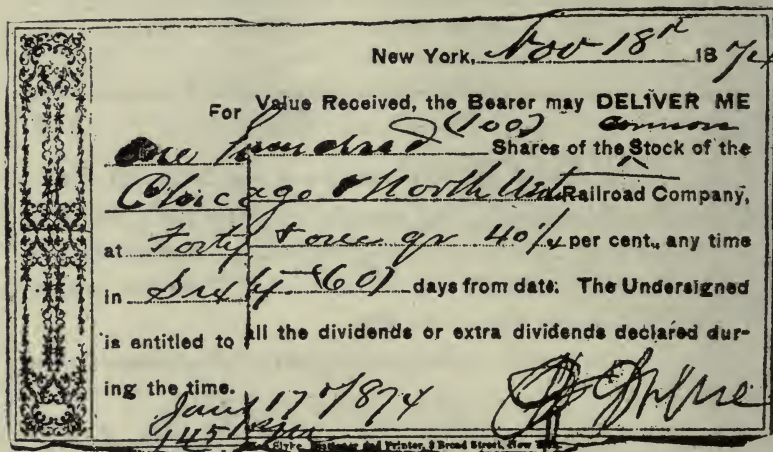 New York, Nov 18th 1874
For Value Received, the Bearer may DELIVER ME
common
One hundred (100) Shares of the ^ Stock of the
Chicago & North West Railroad Company,
at Forty & one qr 40 1/4 per cent., any time
in Sixty (60) days from date. The Undersigned
is entitled to all the dividends or extra dividends declared dur-
ing the time.
Jany 17th/874
Stationer and Printer, 9 Broad Street, New York